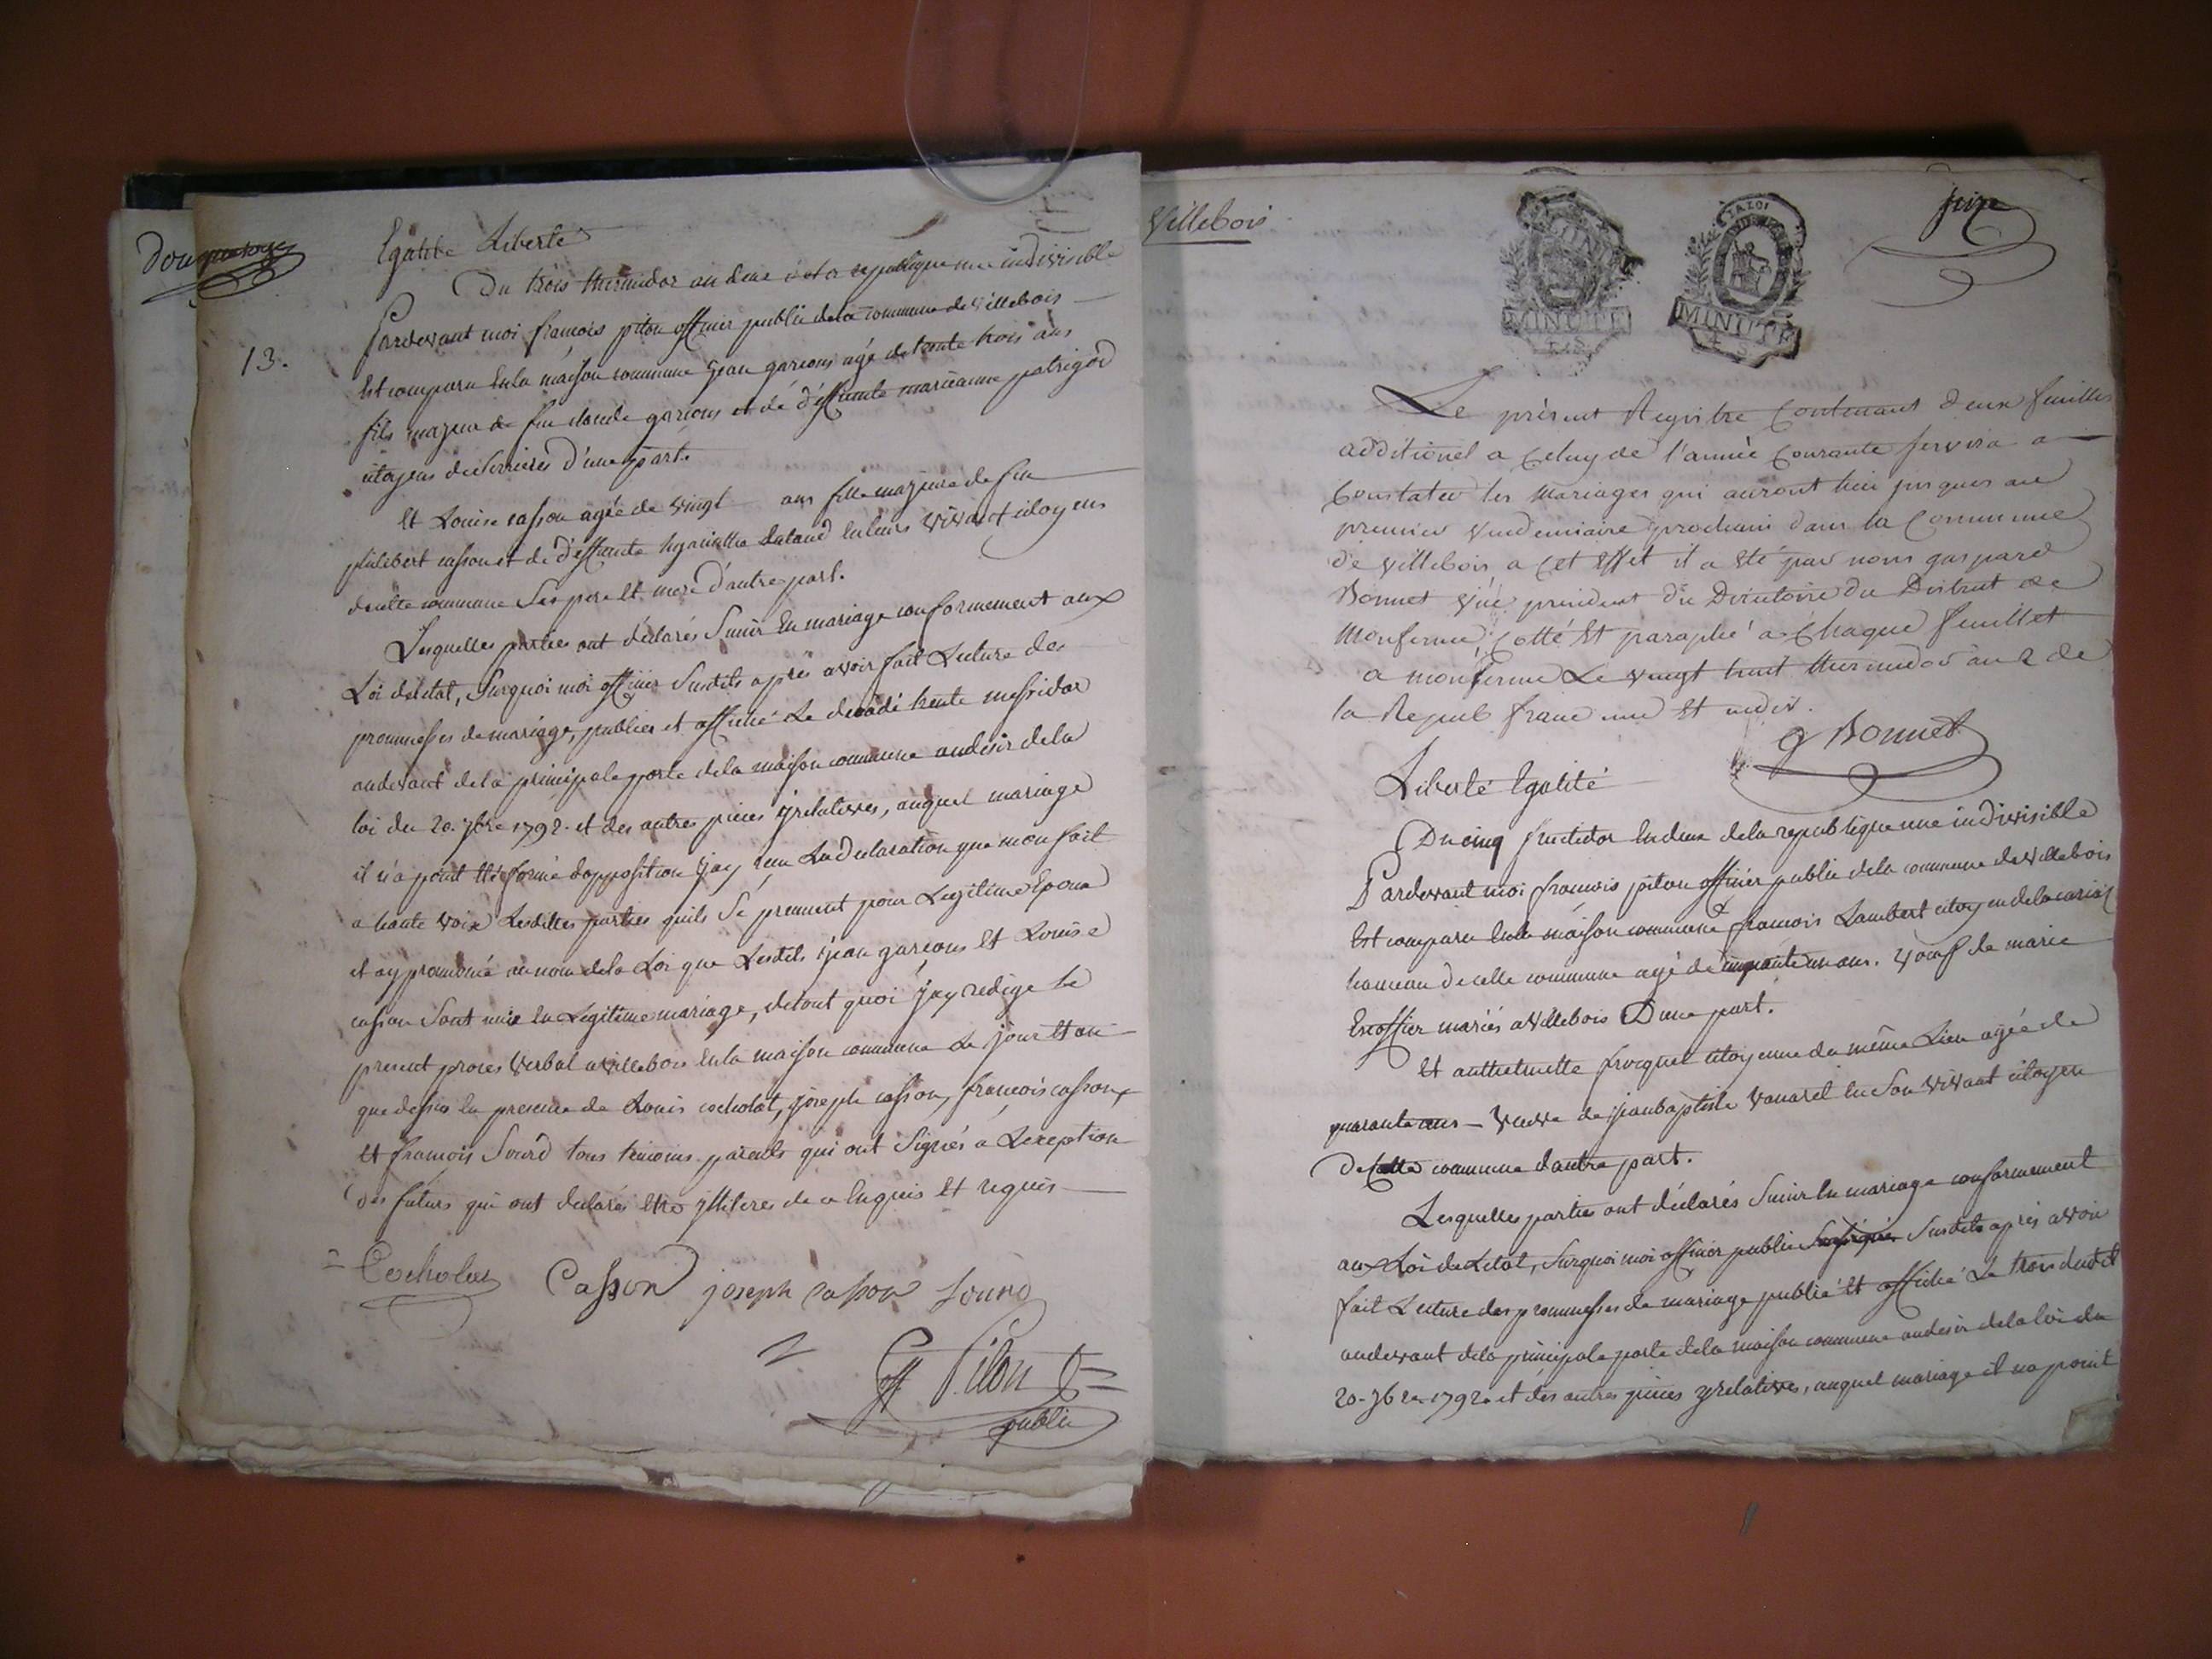 Egalité Liberté
Du trois thermidor an deux de la republique une indivisible
13.
Pardevant moi francois piton officier public de la commune de villebois
Est comparu en la maison commune jean garcons agé de trente trois ans
fils majeur de feu claude garcons et de d'effunte marieanne patrigod
citoyens de serrieres d'une part.
Et Louise casson agée de vingt ans fille majeure de feu
philibert casson et de d'effunte hyacinthe en leurs vivant citoyens
de cette commune ses pere et mere d'autre part.
Lesquelles parties ont déclarés s'unir en mariage conformement aux
Loi de létat, surquoi moi officier susdits après avoir fait Lecture des
prommesses de mariage, publier et affiché le decadi trente messidor
audevant de la principale porte de la maison commune au desir de la
loi du 20. 7bre 1792. et des autres pieces y relatives, auquel mariage
il n'a point été formé d'opposition j'ay reçu La declaration que mon fait
a haute voix Lesdittes parties quils se prennent pour Legitime Epoux
et ay prononcé au nom de la Loi que Lesdits jean garcons et Louise
casson sont unis en Legitime mariage, de tout quoi j'ay redigé le
present proces verbal a villebois en la maison commune le jour et an
que dessus en presence de Louis cocholat, joseph casson, francois casson
et francois Sourd tous temoins parents qui ont signés a Lexeption
des futurs qui ont declarés etre illiteres de ce enquis et requis
Cocholat Casson joseph casson Sourd
Piton off
public
Villebois
MINUTE
MINUTE
Le présent Registre contenant deux feuilles
additionel a celuy de l'année courante servira a
constater les mariages qui auront lieu jusques au
premier vendemiaire prochain dans la Commune
de villebois a cet effet il a été par nous gaspard
Bonnet vice president du Directoire du District de
Monferme, cotté et paraphé a chaque feuillet
a monferme Le vingt huit thermidor an 2 de
la Repub franc une et indiv.
g Bonnet
Liberté Egalité
Du cinq fructidor an deux de la republique une indivisible
Pardevant moi francois piton officier public de la commune de villebois
Est comparu en la maison commune francois Lambert citoyen de
hameau de cette commune agé de cinquante un ans. veuf de marie
Escoffier mariés a villebois D'une part.
Et anthelmette citoyenne du même Lieu agée de
quarante ans - veuve de jean baptiste vanarel en son vivant citoyen
De cette commune d'autre part.
Lesquelles parties ont déclarés s'unir en mariage conformement
aux Loi de Létat, surquoi moi officier public susdits après avoir
fait Lecture des prommesses de mariage publié et affiché Le trois dudit
audevant de la principale porte de la maison commune au desir de la loi du
20. 7bre 1792. et des autres pieces y relatives, auquel mariage il n'a point